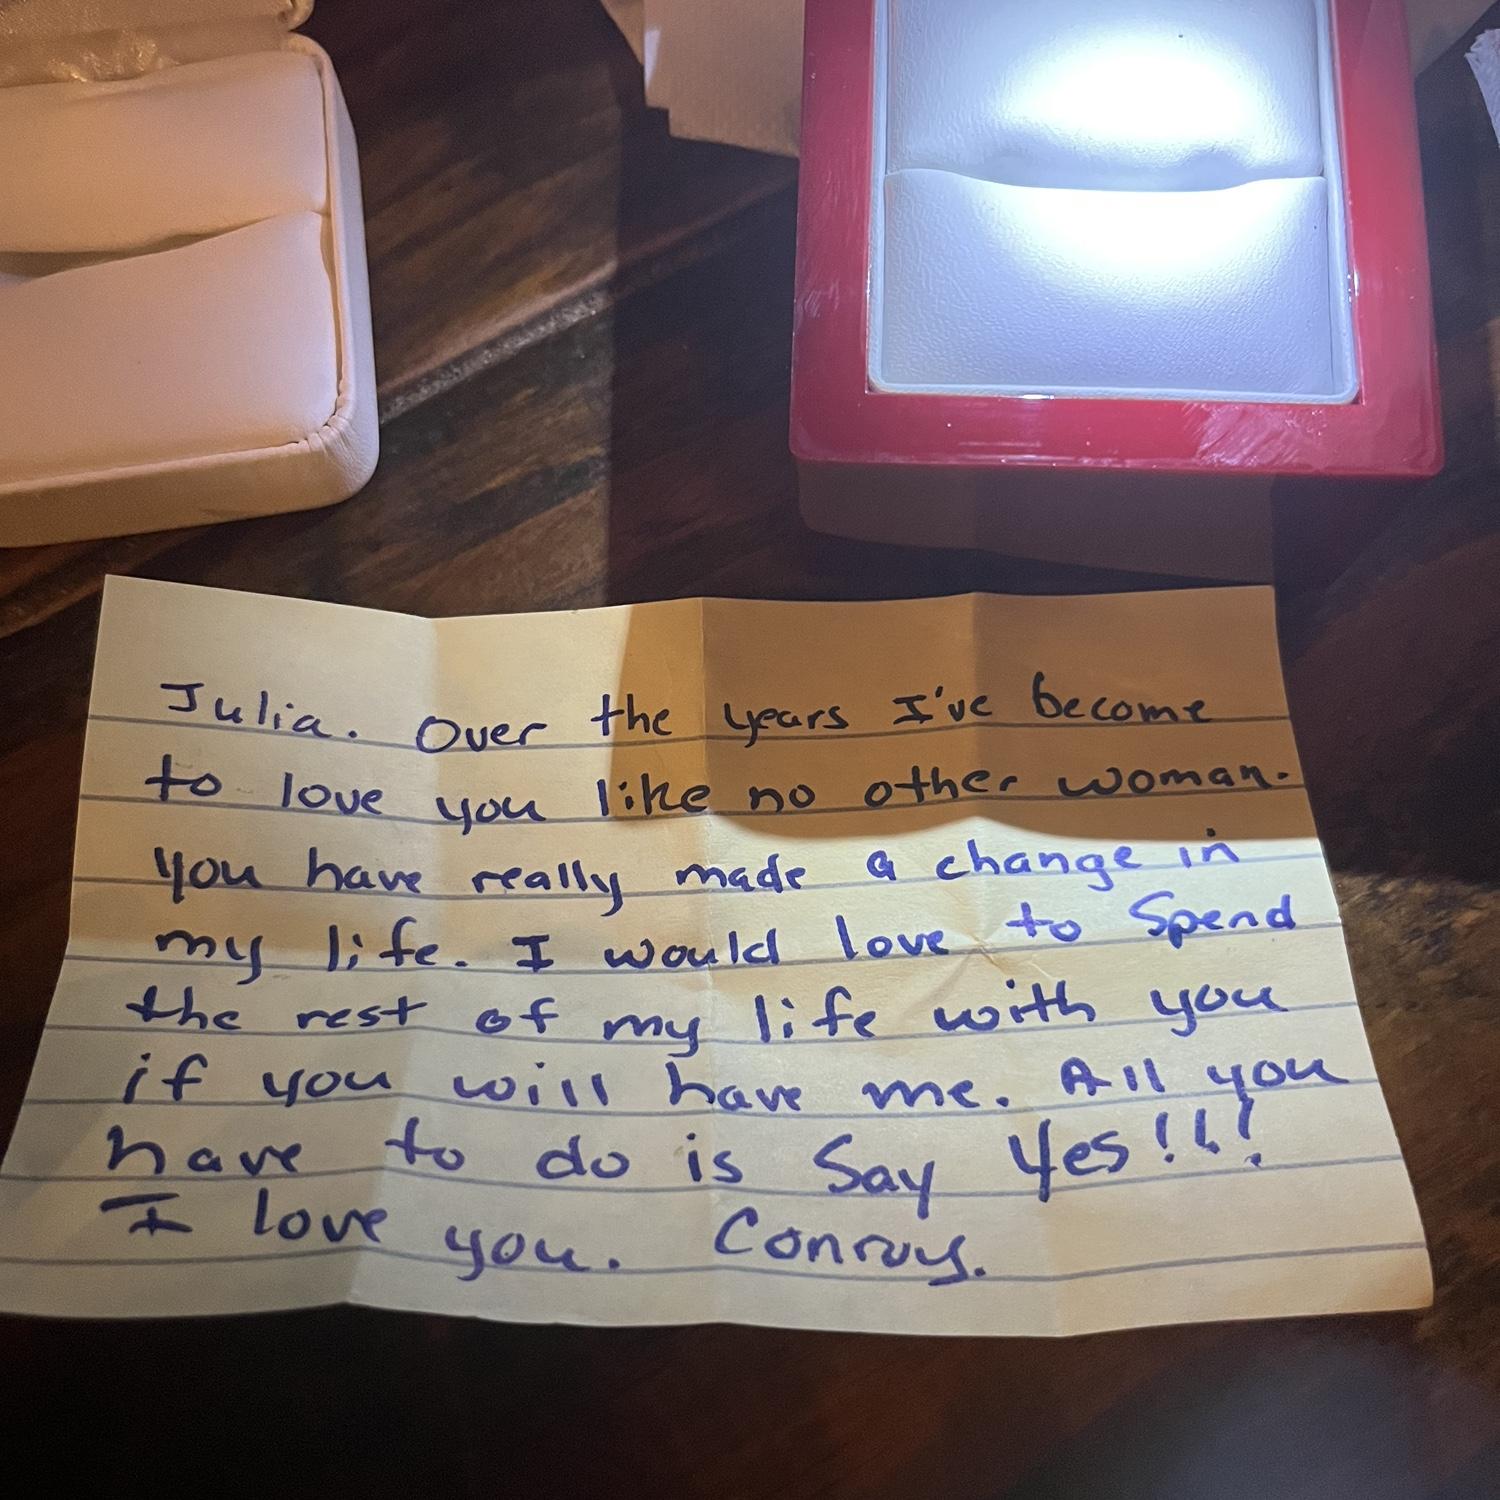 Julia. Over the years I've become
to love you like no other woman.
you have really made a change in
my life. I would love to Spend
the rest of my life with you
if you will have me. All you
have to do is Say Yes!!!
I love you. Conroy.